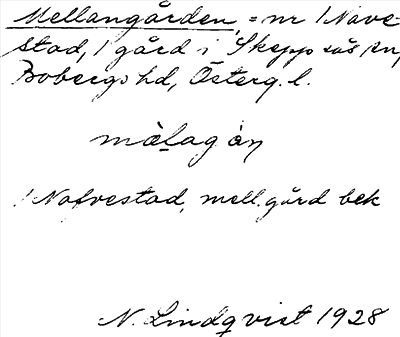 Mellangården, = nr 1 Nave-
stad, 1 gård i Skeppsås sn,
Bobergs hd, Österg. l.
màlagån
1 Nafvestad, mell.gård bek
N. Lindqvist 1928